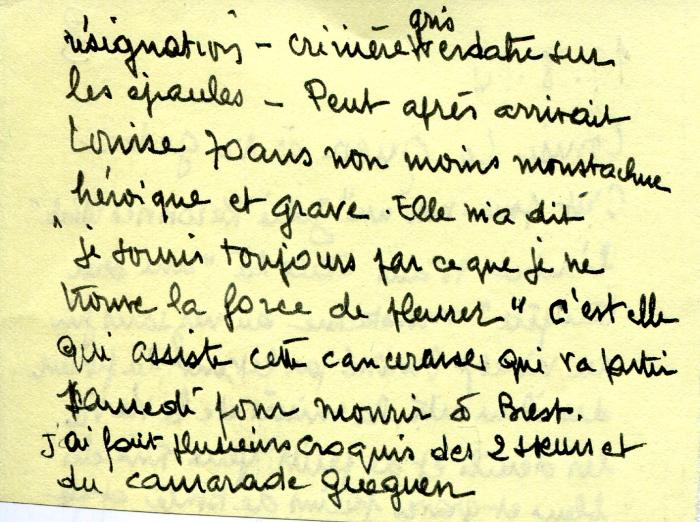 gris
résignation - crinière verdatre sur
les épaules - Peut après arrivait
Louise 70 ans non moins moustachue
héroïque et grave. Elle m'a dit
"je souris toujours par ce que je ne
trouve la force de pleurer" c'est elle
qui assiste cette cancereuse qui va partir
samedi pour mourir à Brest.
j'ai fait plusieurs croquis des 2 sœurs et
du camarade Gueguen